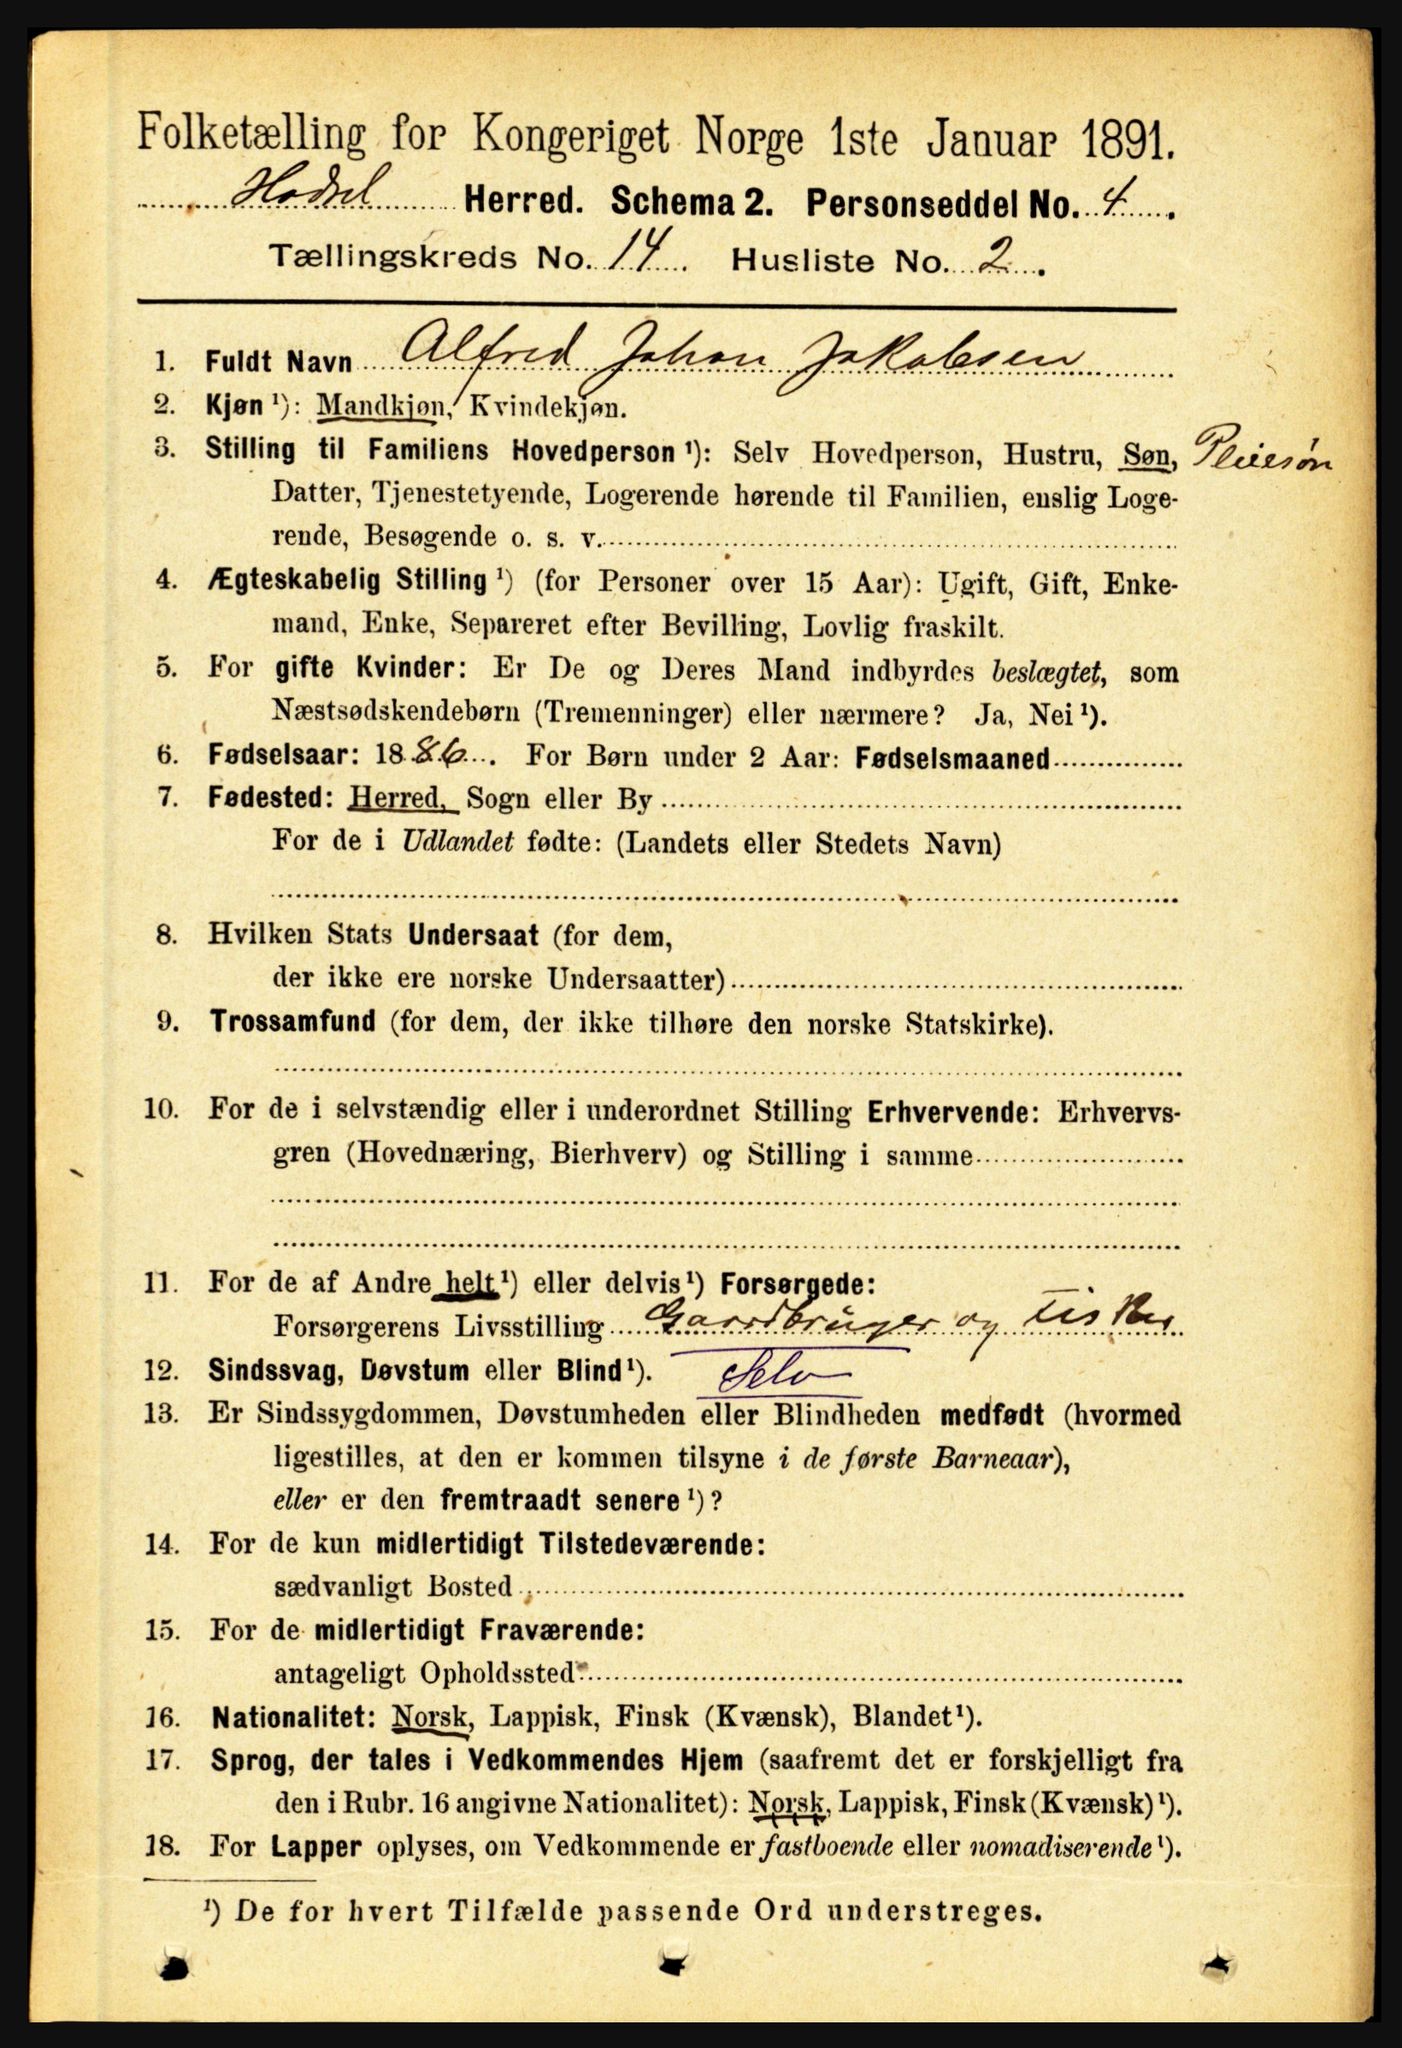 Folketælling for Kongeriget Norge 1ste Januar 1891.
Hadsel Herred. Schema 2. Personseddel No. 4.
Tællingskreds No. 14. Husliste No. 2.
1. Fuldt Navn Alfred Johan Jakobsen
2. Kjøn¹): Mandkjøn, Kvindekjøn.
3. Stilling til Familiens Hovedperson¹): Selv Hovedperson, Hustru, Søn, Pleiesøn
Datter, Tjenestetyende, Logerende hørende til Familien, enslig Loge-
rende, Besøgende o. s. v.
4. Ægteskabelig Stilling¹) (for Personer over 15 Aar): Ugift, Gift, Enke-
mand, Enke, Separeret efter Bevilling, Lovlig fraskilt.
5. For gifte Kvinder: Er De og Deres Mand indbyrdes beslægtet, som
Næstsødskendebørn (Tremenninger) eller nærmere? Ja, Nei¹).
6. Fødselsaar: 1886. For Børn under 2 Aar: Fødselsmaaned
7. Fødested: Herred, Sogn eller By
For de i Udlandet fødte: (Landets eller Stedets Navn)
8. Hvilken Stats Undersaat (for dem,
der ikke ere norske Undersaatter)
9. Trossamfund (for dem, der ikke tilhøre den norske Statskirke).
10. For de i selvstændig eller i underordnet Stilling Erhvervende: Erhvervs-
gren (Hovednæring, Bierhverv) og Stilling i samme
11. For de af Andre helt¹) eller delvis¹) Forsørgede:
Forsørgerens Livsstilling Gaardbruger og Fisker
12. Sindssvag, Døvstum eller Blind¹). Selv
13. Er Sindssygdommen, Døvstumheden eller Blindheden medfødt (hvormed
ligestilles, at den er kommen tilsyne i de første Barneaar),
eller er den fremtraadt senere¹)?
14. For de kun midlertidigt Tilstedeværende:
sædvanligt Bosted
15. For de midlertidigt Fraværende:
antageligt Opholdssted
16. Nationalitet: Norsk, Lappisk, Finsk (Kvænsk), Blandet¹).
17. Sprog, der tales i Vedkommendes Hjem (saafremt det er forskjelligt fra
den i Rubr. 16 angivne Nationalitet): Norsk, Lappisk, Finsk (Kvænsk)¹).
18. For Lapper oplyses, om Vedkommende er fastboende eller nomadiserende¹).
¹) De for hvert Tilfælde passende Ord understreges.